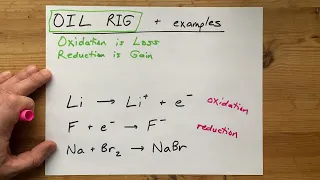 OIL RIG + examples
Oxidation is Loss
Reduction is Gain
Li → Li⁺ + e⁻ oxidation
F + e⁻ → F⁻ reduction
Na + Br₂ → NaBr